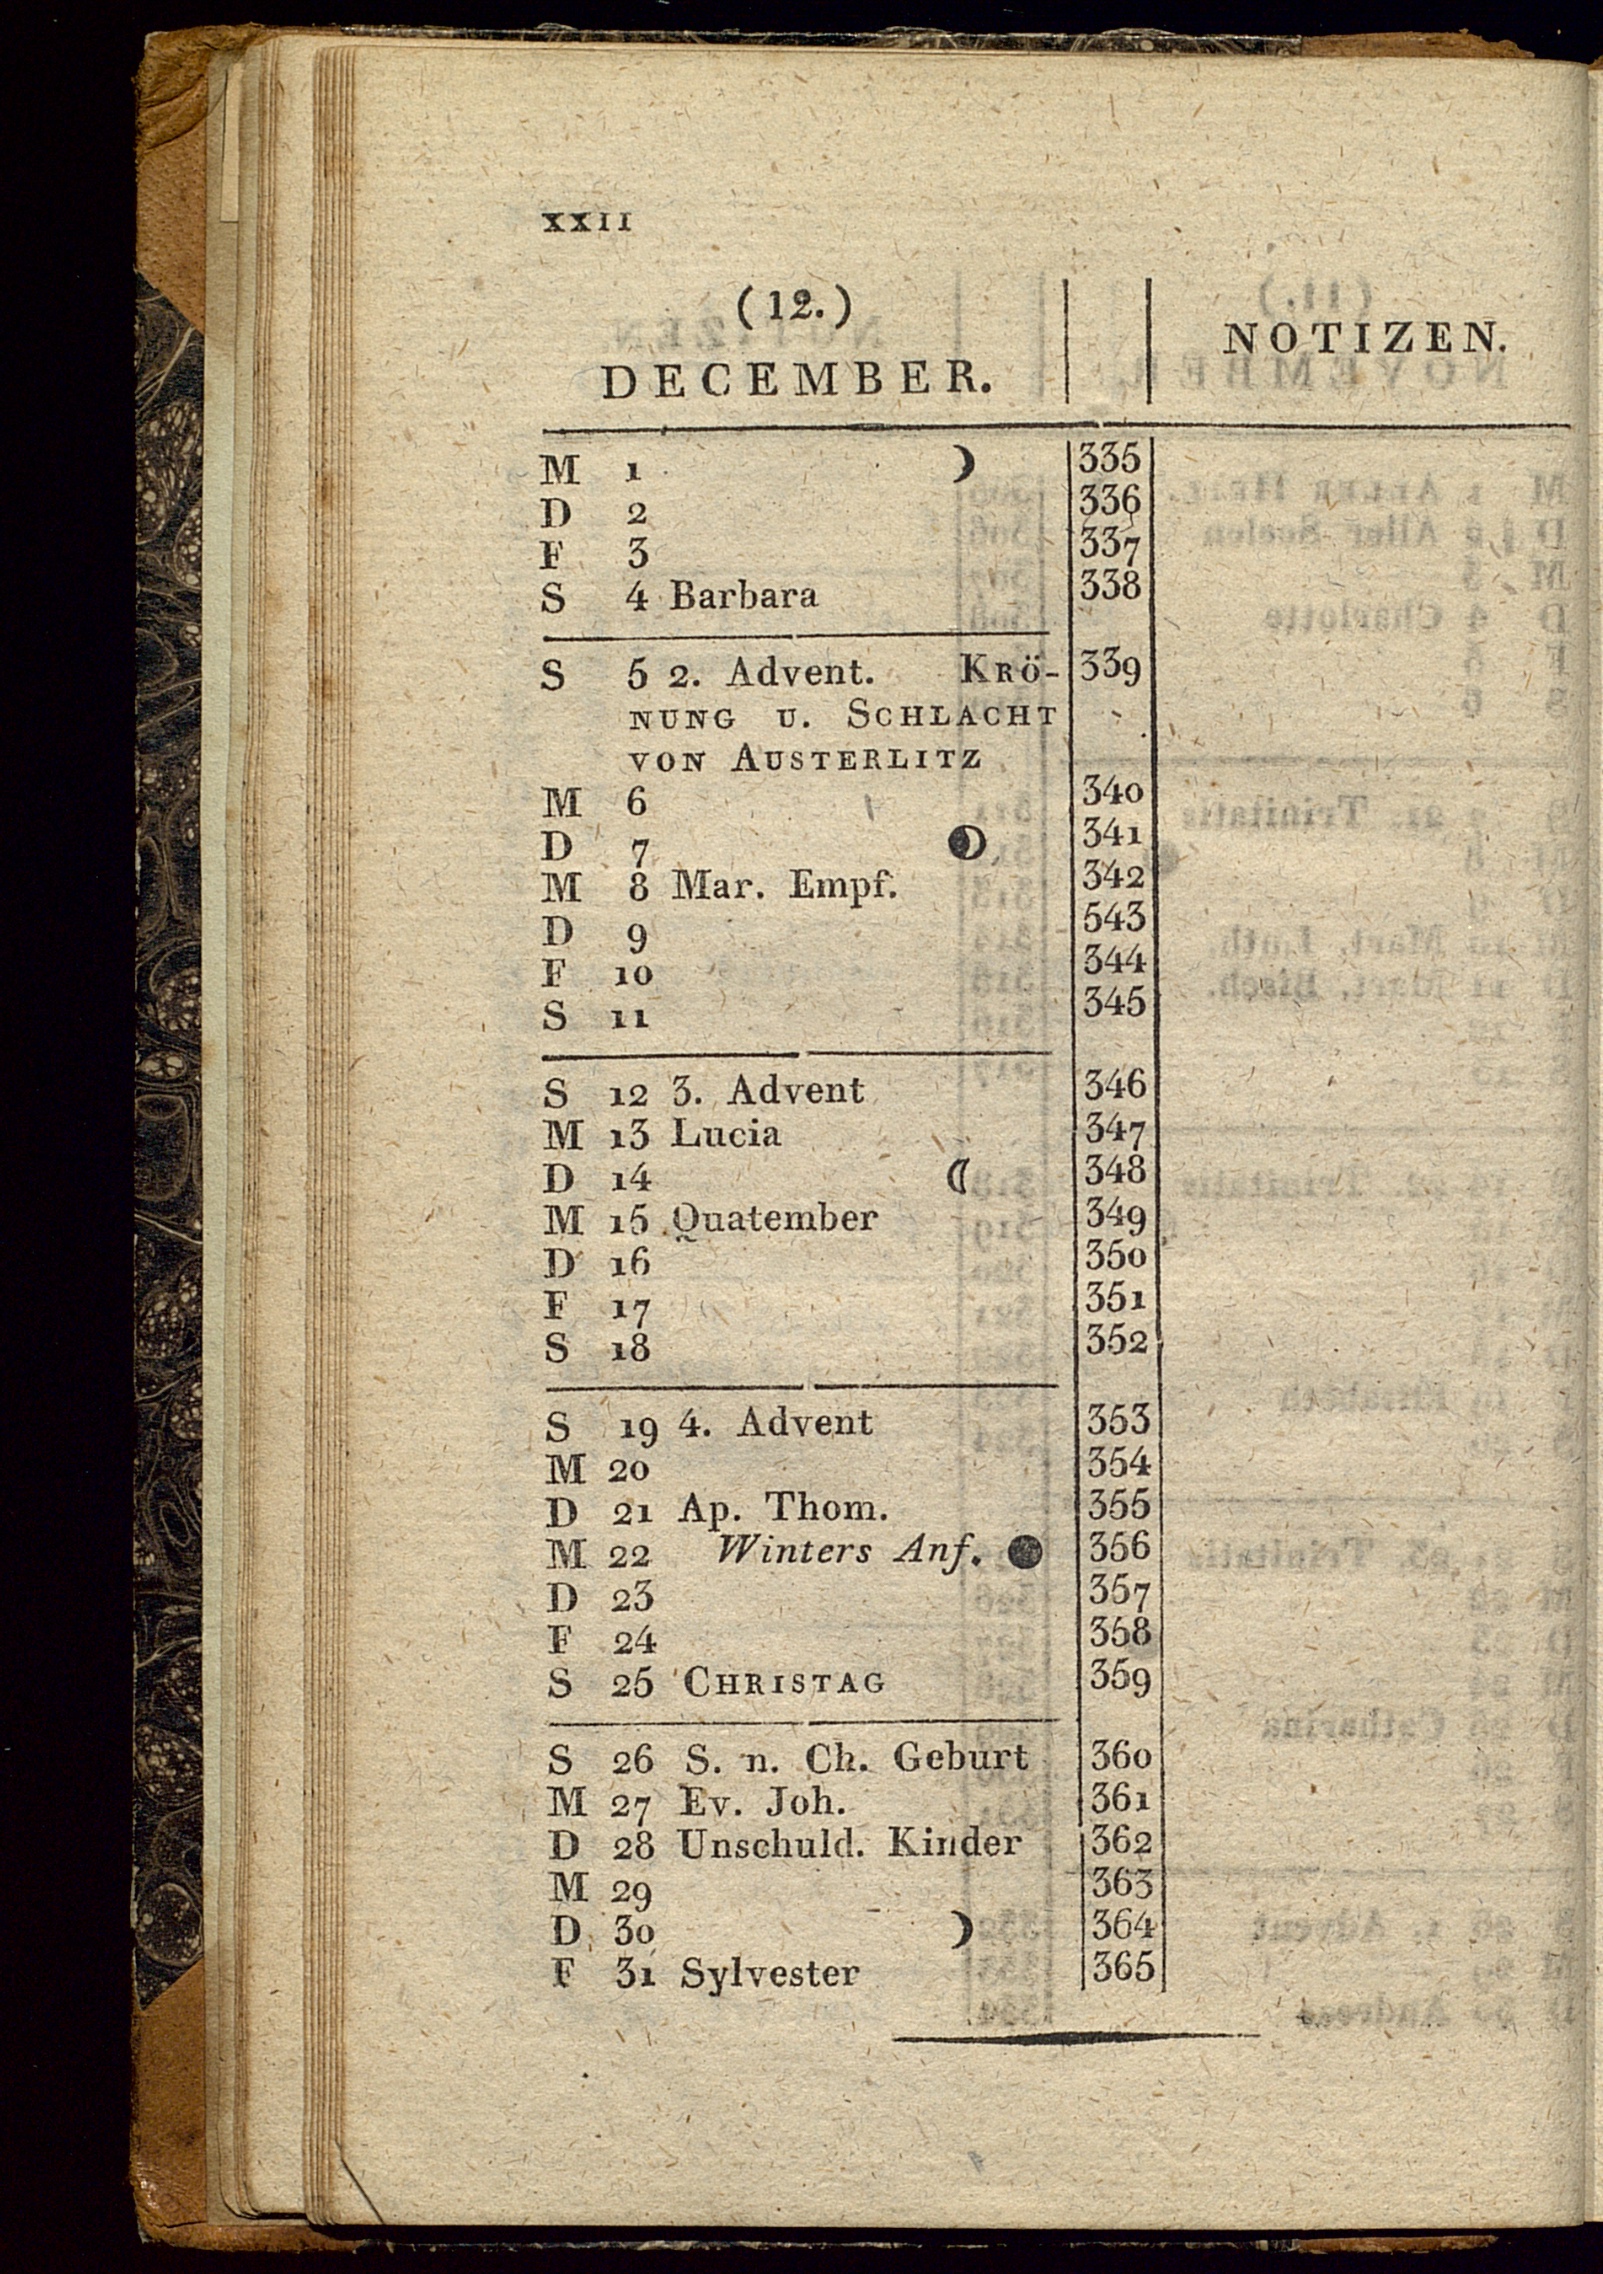 XXII
(12.)
DECEMBER.
NOTIZEN.
M 1 ☽ 335
D 2 336
F 3 337
S 4 Barbara 338
S 5 2. Advent. KRÖ- 339
NUNG U. SCHLACHT
VON AUSTERLITZ
M 6 340
D 7 341
M 8 Mar. Empf. 342
D 9 543
F 10 344
S 11 345
S 12 3. Advent 346
M 13 Lucia 347
D 14 ☾ 348
M 15 Quatember 349
D 16 350
F 17 351
S 18 352
S 19 4. Advent 353
M 20 354
D 21 Ap. Thom. 355
M 22 Winters Anf. ● 356
D 23 357
F 24 358
S 25 CHRISTAG 359
S 26 S. n. Ch. Geburt 360
M 27 Ev. Joh. 361
D 28 Unschuld. Kinder 362
M 29 363
D 30 ☽ 364
F 31 Sylvester 365